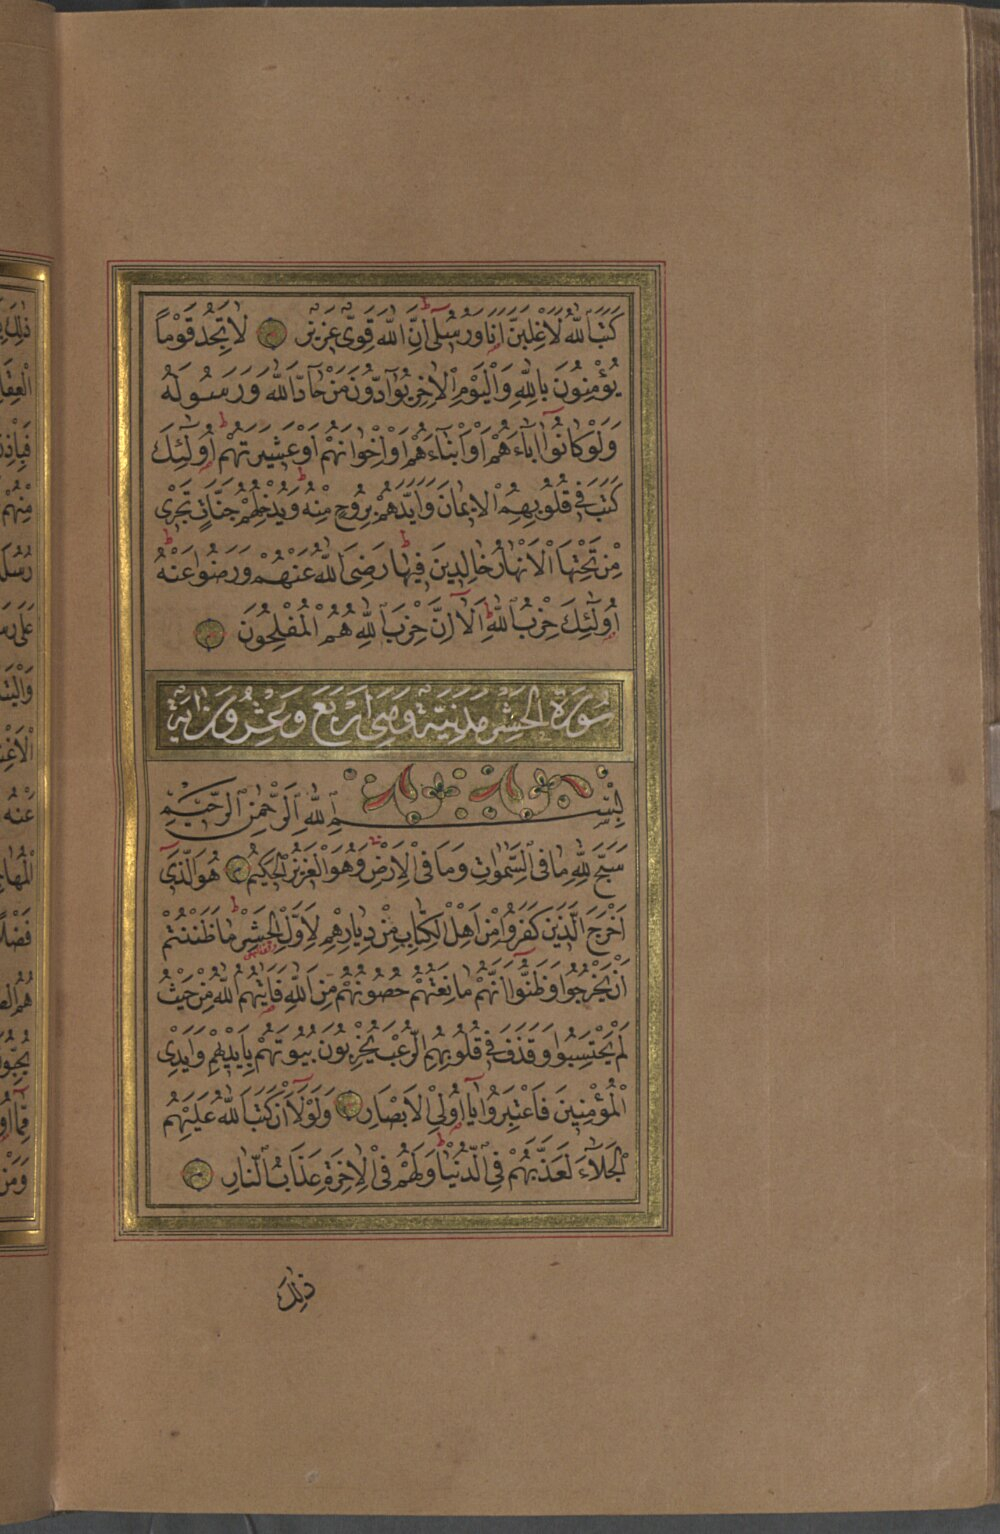 كَتَبَ اللّٰهُ لَاَغْلِبَنَّ اَنَا وَرُسُلٖى اِنَّ اللّٰهَ قَوِىٌّ عَزٖيزٌ لَا تَجِدُ قَوْمًا
يُؤْمِنُونَ بِاللّٰهِ وَالْيَوْمِ الْاٰخِرِ يُوَادُّونَ مَنْ حَادَّ اللّٰهَ وَرَسُولَهُ
وَلَوْ كَانُوا اٰبَاءَهُمْ اَوْ اَبْنَاءَهُمْ اَوْ اِخْوَانَهُمْ اَوْ عَشٖيرَتَهُمْ اُولٰئِكَ
كَتَبَ فٖى قُلُوبِهِمُ الْاٖيمَانَ وَاَيَّدَهُمْ بِرُوحٍ مِنْهُ وَيُدْخِلُهُمْ جَنَّاتٍ تَجْرٖى
مِنْ تَحْتِهَا الْاَنْهَارُ خَالِدٖينَ فٖيهَا رَضِىَ اللّٰهُ عَنْهُمْ وَرَضُوا عَنْهُ
اُولٰئِكَ حِزْبُ اللّٰهِ اَلَا اِنَّ حِزْبَ اللّٰهِ هُمُ الْمُفْلِحُونَ
سُورَةُ الْحَشْرِ مَدَنِيَّةٌ وَهِىَ اَرْبَعٌ وَعِشْرُونَ اٰيَةً
بِسْمِ اللّٰهِ الرَّحْمٰنِ الرَّحٖيمِ
سَبَّحَ لِلّٰهِ مَا فِى السَّمٰوَاتِ وَمَا فِى الْاَرْضِ وَهُوَ الْعَزٖيزُ الْحَكٖيمُ هُوَ الَّذٖى
اَخْرَجَ الَّذٖينَ كَفَرُوا مِنْ اَهْلِ الْكِتَابِ مِنْ دِيَارِهِمْ لِاَوَّلِ الْحَشْرِ مَا ظَنَنْتُمْ
اَنْ يَخْرُجُوا وَظَنُّوا اَنَّهُمْ مَانِعَتُهُمْ حُصُونُهُمْ مِنَ اللّٰهِ فَاَتٰيهُمُ اللّٰهُ مِنْ حَيْثُ
لَمْ يَحْتَسِبُوا وَقَذَفَ فٖى قُلُوبِهِمُ الرُّعْبَ يُخْرِبُونَ بُيُوتَهُمْ بِاَيْدٖيهِمْ وَاَيْدِى
الْمُؤْمِنٖينَ فَاعْتَبِرُوا يَا اُولِى الْاَبْصَارِ وَلَوْلَا اَنْ كَتَبَ اللّٰهُ عَلَيْهِمُ
الْجَلَاءَ لَعَذَّبَهُمْ فِى الدُّنْيَا وَلَهُمْ فِى الْاٰخِرَةِ عَذَابُ النَّارِ
ذٰلِكَ